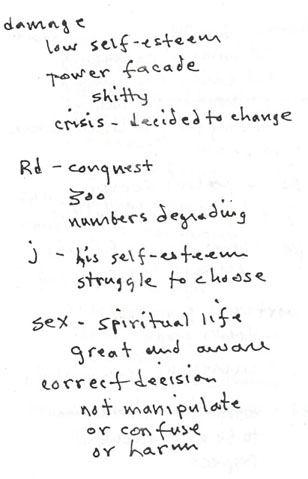 damage
low self-esteem
power facade
shitty
crisis - decided to change
Rd - conquest
300
numbers degrading
j - his self-esteem
struggle to choose
sex - spiritual life
great and aware
correct decision
not manipulate
or confuse
or harm